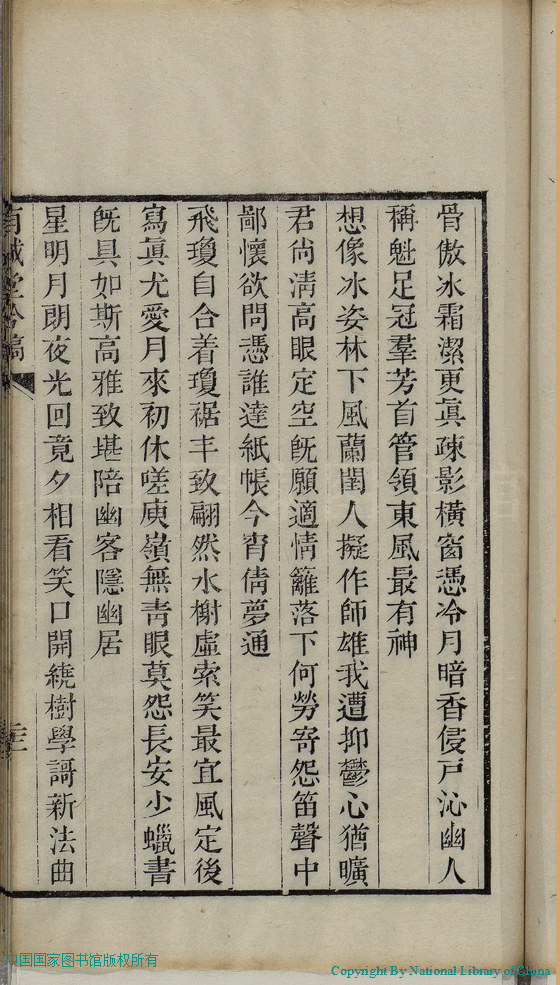 骨傲冰霜潔更眞疎影橫窗憑冷月暗香侵戸沁幽人
稱魁足冠羣芳首管領東風最有神
想像冰姿林下風蘭閨人擬作師雄我遭抑鬱心猶曠
君尙淸高眼定空旣願適情籬落下何勞寄怨笛聲中
鄙懷欲問憑誰達紙帳今宵倩夢通
飛瓊自合着瓊裾丰致翩然水榭虛索笑最宜風定後
寫眞尤愛月來初休嗟庾嶺無靑眼莫怨長安少蠟書
旣具如斯高雅致堪陪幽客隱幽居
星明月朗夜光回竟夕相看笑口開繞樹學謌新法曲
有誠堂吟稿
中国国家图书馆版权所有
Copyright By National Library of China